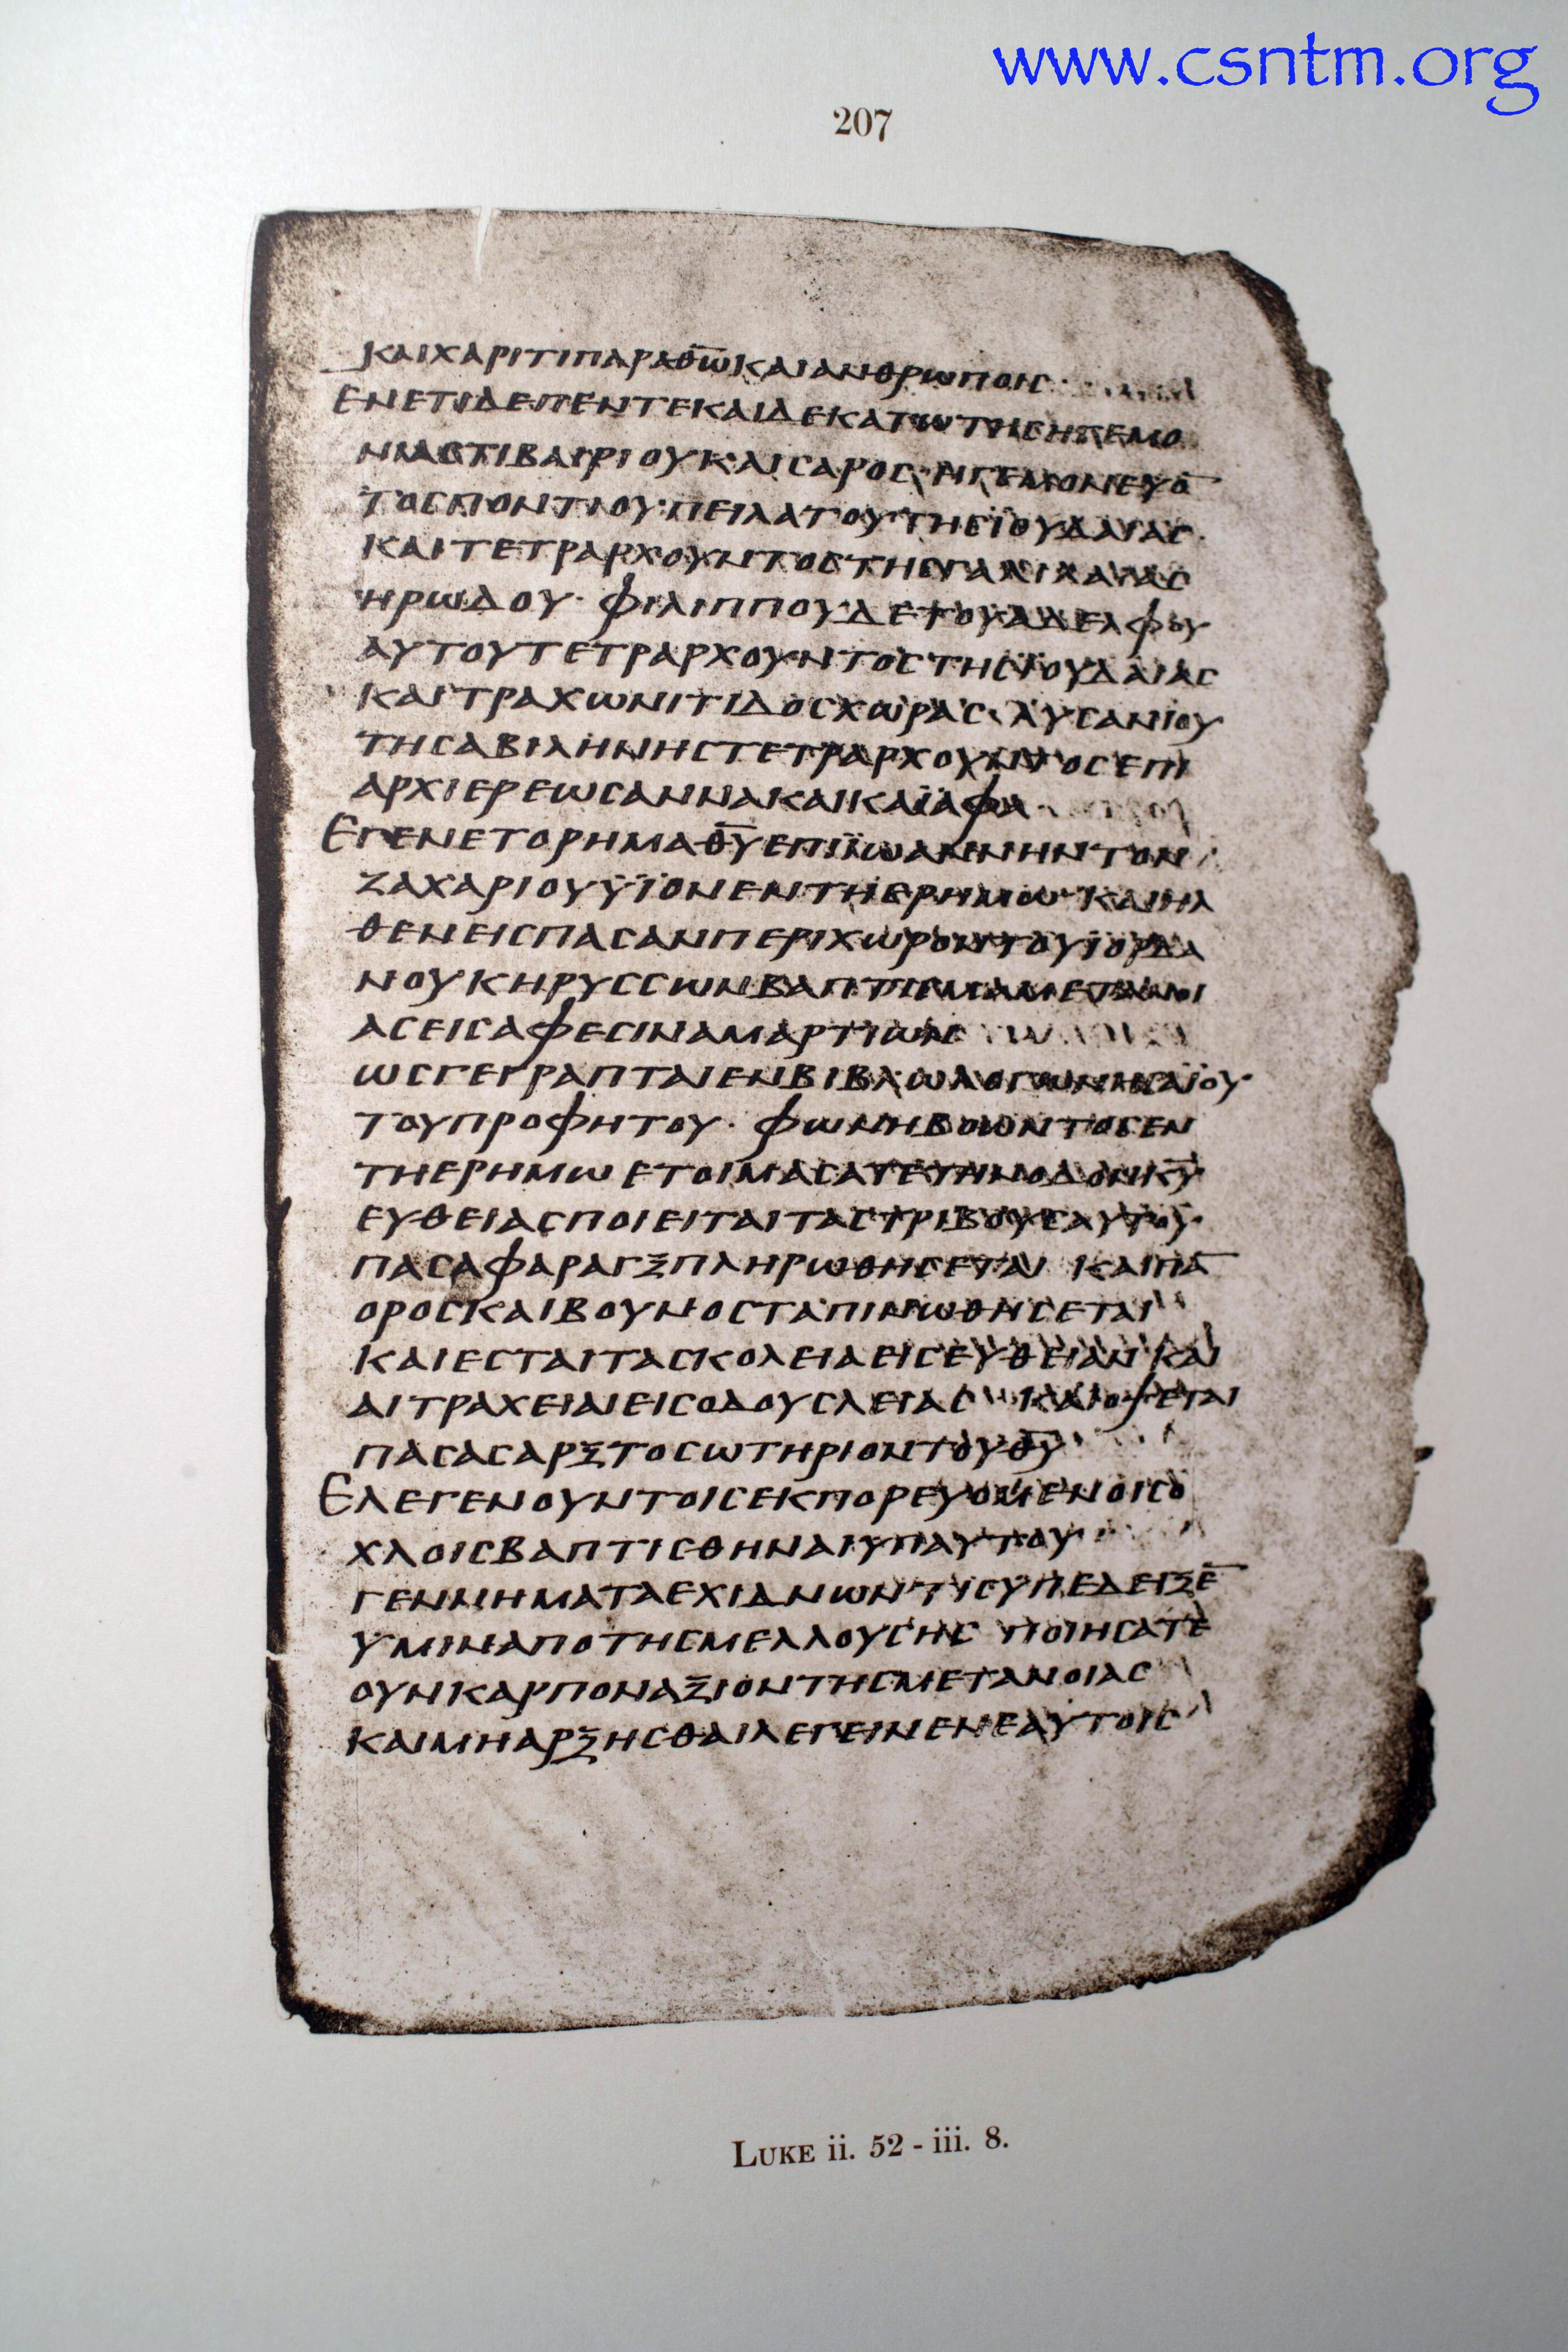 www.csntm.org
207
ΚΑΙΧΑΡΙΤΙΠΑΡΑΘ̅Ω̅ΚΑΙΑΝΘΡΩΠΟΙC·
ΕΝΕΤΙΔΕΠΕΝΤΕΚΑΙΔΕΚΑΤΩΤΗCΗΓΕΜΟ
ΝΙΑCΤΙΒΑΙΡΙΟΥΚΑΙCΑΡΟC·ΗΓΕΜΟΝΕΥΟ̅
ΤΟCΠΟΝΤΙΟΥ·ΠΕΙΛΑΤΟΥΤΗCΪΟΥΔΑΙΑC·
ΚΑΙΤΕΤΡΑΡΧΟΥΝΤΟCΤΗCΓΑΛΙΛΑΙΑC
ΗΡΩΔΟΥ· ΦΙΛΙΠΠΟΥΔΕΤΟΥΑΔΕΛΦΟΥ
ΑΥΤΟΥΤΕΤΡΑΡΧΟΥΝΤΟCΤΗCΪΟΥΔΑΙΑC
ΚΑΙΤΡΑΧΩΝΙΤΙΔΟCΧΩΡΑC· ΛΥCΑΝΙΟΥ
ΤΗCΑΒΙΛΗΝΗCΤΕΤΡΑΡΧΟΥΝΤΟCΕΠΙ
ΑΡΧΙΕΡΕΩCΑΝΝΑΚΑΙΚΑΪΑΦΑ·
ΕΓΕΝΕΤΟΡΗΜΑΘ̅Υ̅ΕΠΙΪΩΑΝΝΗΝΤΟΝ
ΖΑΧΑΡΙΟΥΫΪΟΝΕΝΤΗΕΡΗΜΩ· ΚΑΙΗΛ
ΘΕΝΕΙCΠΑCΑΝΠΕΡΙΧΩΡΟΝΤΟΥΙΟΡΔΑ
ΝΟΥΚΗΡΥCCΩΝΒΑΠΤΙCΜΑΜΕΤΑΝΟΙ
ΑCΕΙCΑΦΕCΙΝΑΜΑΡΤΙΩΝ
ΩCΓΕΓΡΑΠΤΑΙΕΝΒΙΒΛΩΛΟΓΩΝΗCΑΪΟΥ
ΤΟΥΠΡΟΦΗΤΟΥ· ΦΩΝΗΒΟΩΝΤΟCΕΝ
ΤΗΕΡΗΜΩΕΤΟΙΜΑCΑΤΕΤΗΝΟΔΟΝΚ̅Υ̅·
ΕΥΘΕΙΑCΠΟΙΕΙΤΑΙΤΑCΤΡΙΒΟΥCΑΥΤΟΥ·
ΠΑCΑΦΑΡΑΓΞΠΛΗΡΩΘΗCΕΤΑΙ ΚΑΙΠΑ̅
ΟΡΟCΚΑΙΒΟΥΝΟCΤΑΠΙΝΩΘΗCΕΤΑΙ
ΚΑΙΕCΤΑΙΤΑCΚΟΛΕΙΑΕΙCΕΥΘΕΙΑΝ ΚΑΙ
ΑΙΤΡΑΧΕΙΑΙΕΙCΟΔΟΥCΛΕΙΑC ΚΑΙΟΨΕΤΑΙ
ΠΑCΑCΑΡΞΤΟCΩΤΗΡΙΟΝΤΟΥΘ̅Υ̅
ΕΛΕΓΕΝΟΥΝΤΟΙCΕΚΠΟΡΕΥΟΜΕΝΟΙCΟ
ΧΛΟΙCΒΑΠΤΙCΘΗΝΑΙΥΠΑΥΤΟΥ
ΓΕΝΝΗΜΑΤΑΕΧΙΔΝΩΝΤΙCΥΠΕΔΕΙΞΕ̅
ΥΜΙΝΑΠΟΤΗCΜΕΛΛΟΥCΗC ΠΟΙΗCΑΤΕ
ΟΥΝΚΑΡΠΟΝΑΞΙΟΝΤΗCΜΕΤΑΝΟΙΑC
ΚΑΙΜΗΑΡΞΗCΘΑΙΛΕΓΕΙΝΕΝΕΑΥΤΟΙC
LUKE ii. 52 - iii. 8.